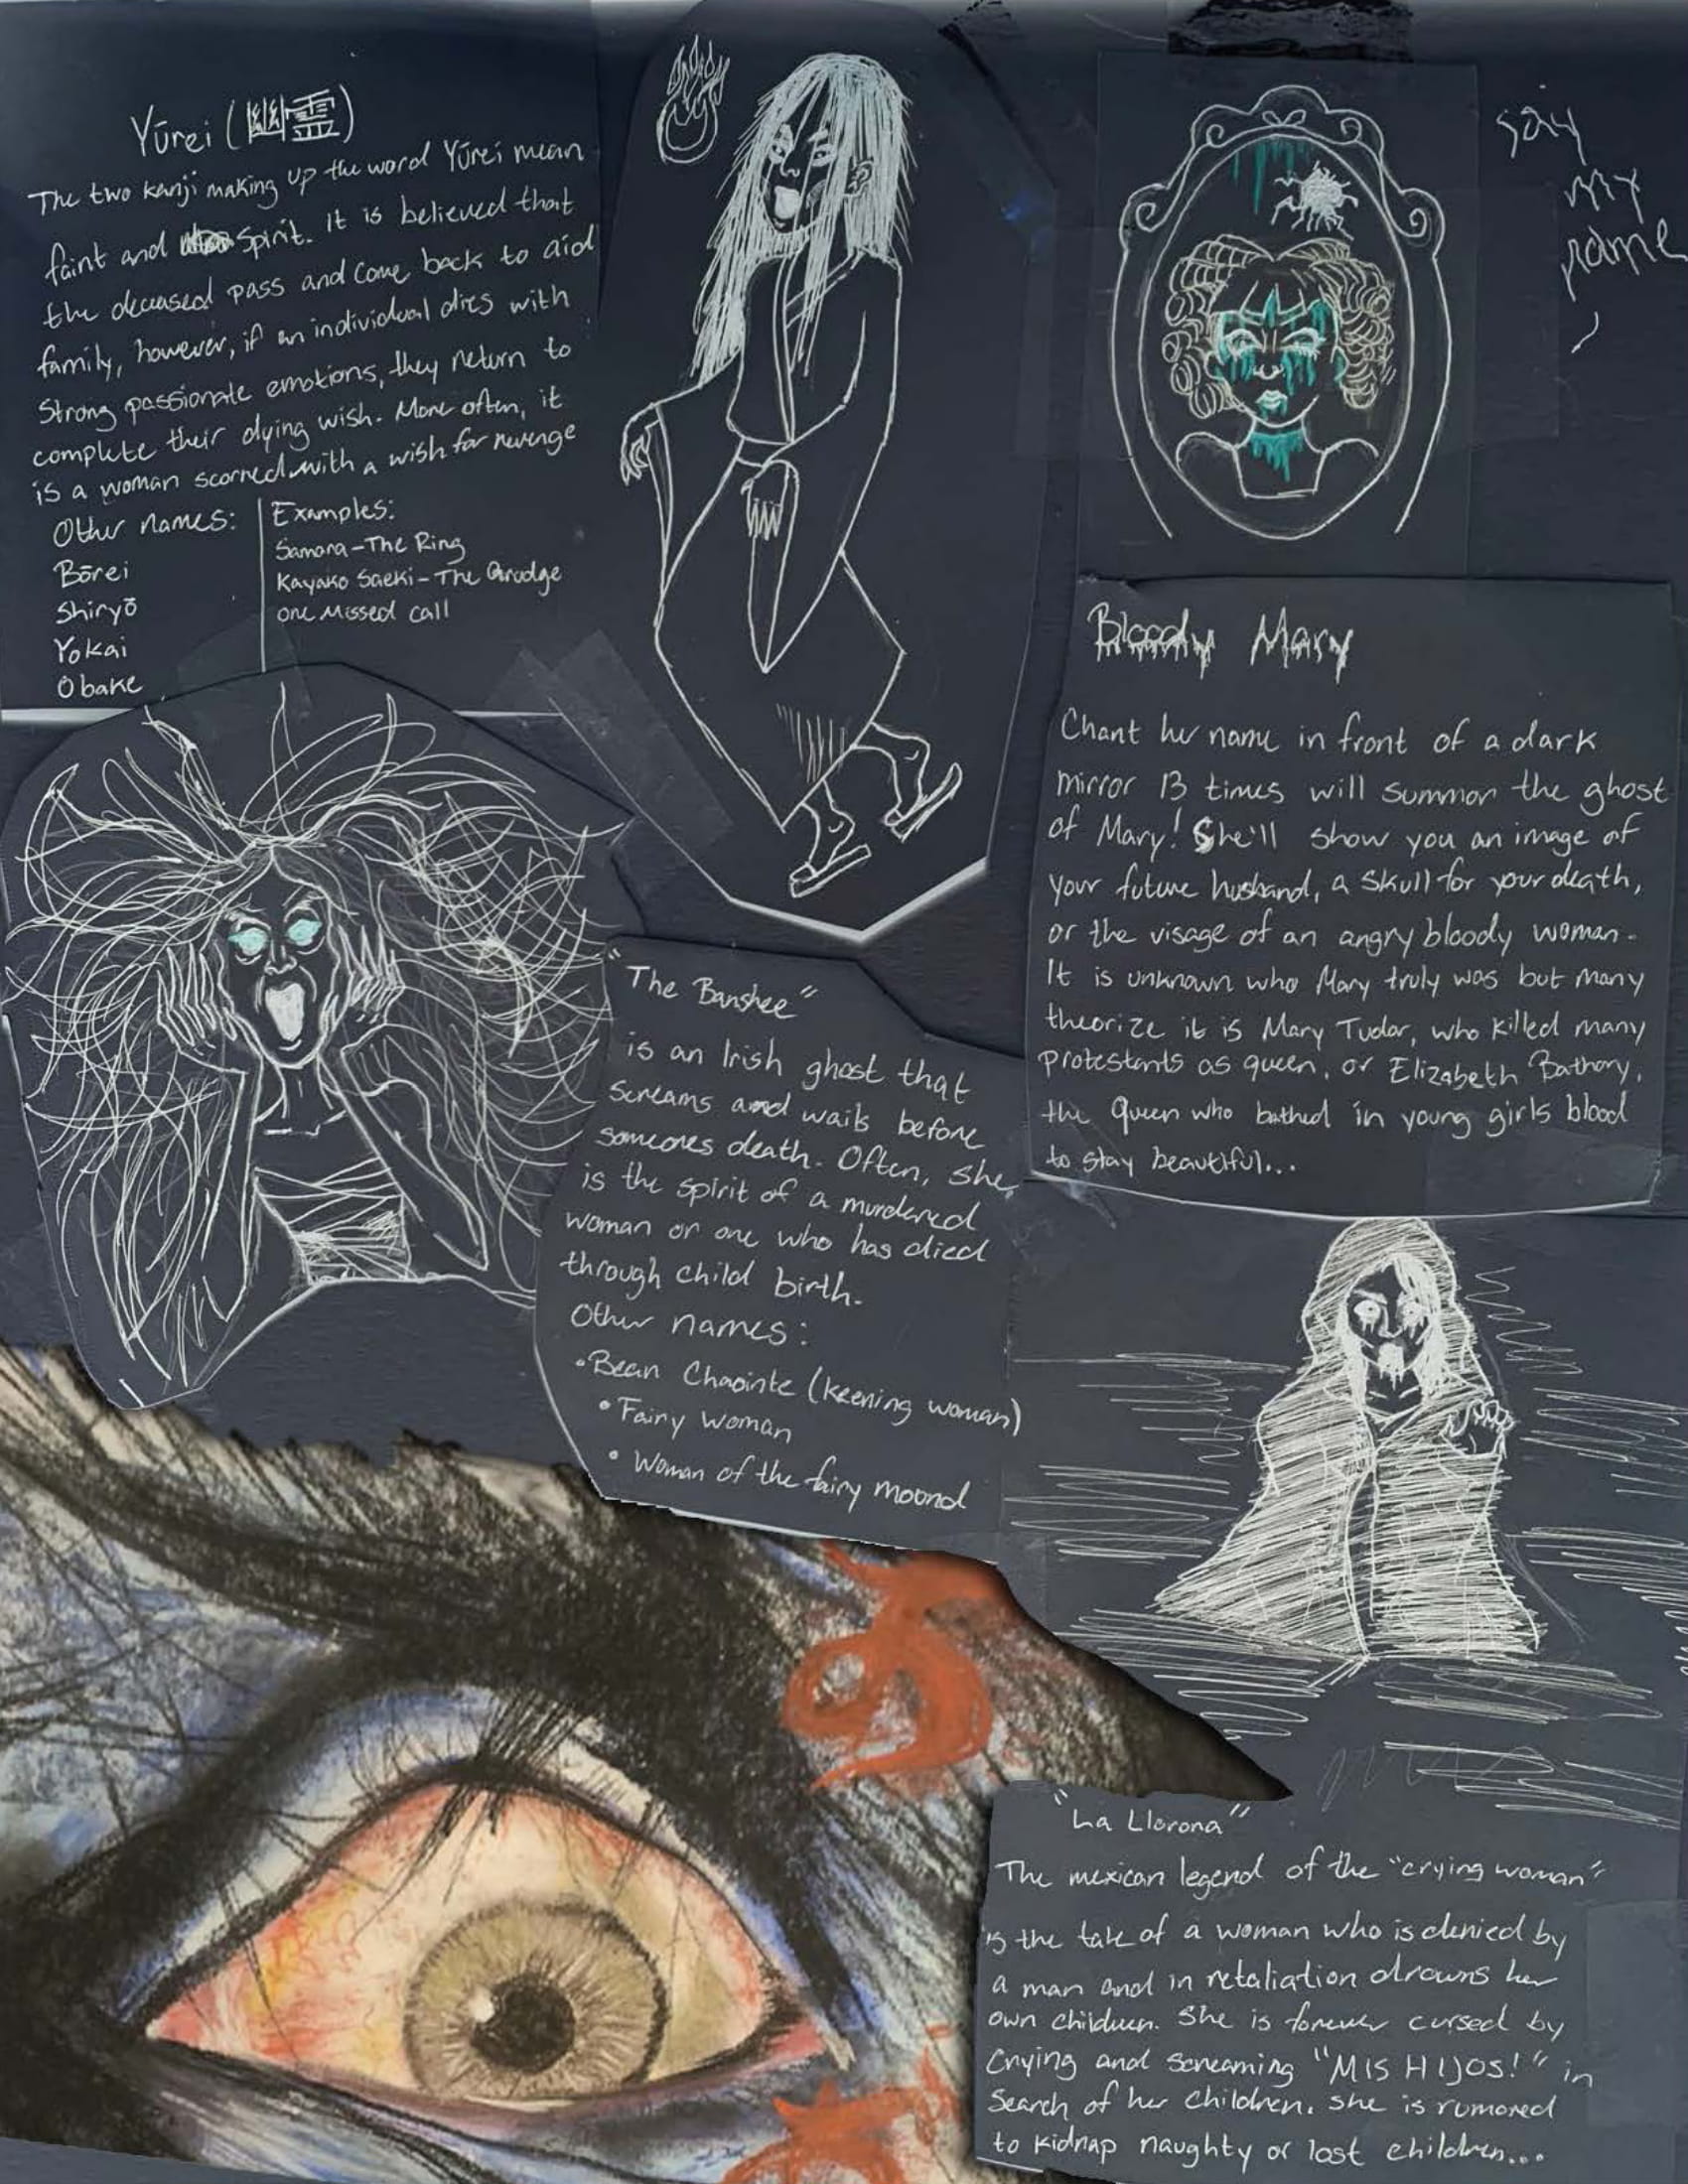 Yūrei (幽霊)
The two kanji making up the word Yūrei mean
faint and spirit. It is believed that
the deceased pass and come back to aid
family, however, if an individual dies with
strong passionate emotions, they return to
complete their dying wish. More often, it
is a woman scorned with a wish for revenge
Other names:
Bōrei
Shiryō
Yokai
Obake
Examples:
Samara-The Ring
Kayako Saeki-The Grudge
One Missed Call
say
my
name
Bloody Mary
Chant her name in front of a dark
mirror 13 times will summon the ghost
of Mary! She'll show you an image of
your future husband, a skull for your death,
or the visage of an angry bloody woman.
It is unknown who Mary truly was but many
theorize it is Mary Tudor, who killed many
protestants as queen, or Elizabeth Bathory,
the queen who bathed in young girls blood
to stay beautiful...
"The Banshee"
is an Irish ghost that
screams and wails before
someones death. Often, she
is the spirit of a murdered
woman or one who has died
through child birth.
Other names:
•Bean Chaointe (keening woman)
•Fairy woman
•Woman of the fairy moond
"La Llorona"
The mexican legend of the "crying woman"
is the tale of a woman who is denied by
a man and in retaliation drowns her
own children. She is forever cursed by
Crying and screaming "MIS HIJOS!" in
search of her children. She is rumored
to kidnap naughty or lost children...